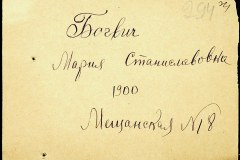 Богвич
Мария Станиславовна
1900
Мещанская N 8